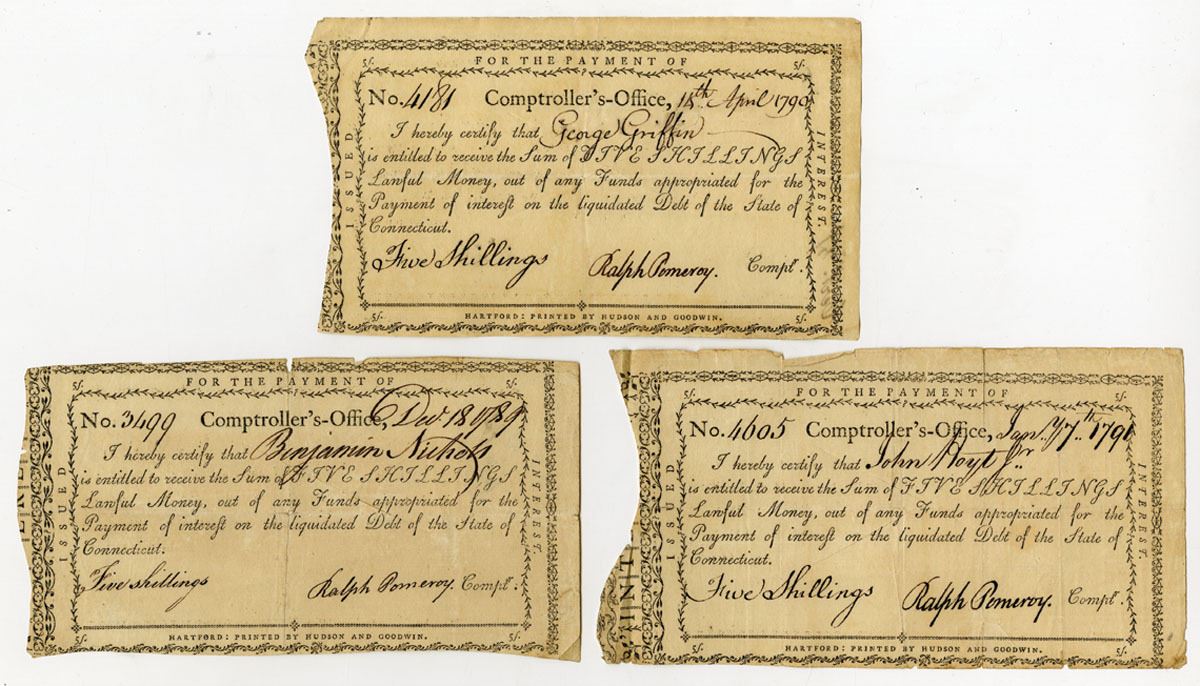 5/. FOR THE PAYMENT OF 5/.
No. 4181 Comptroller's-Office, 15th April 1790
I hereby certify that George Griffin
is entitled to receive the Sum of FIVE SHILLINGS
Lawful Money, out of any Funds appropriated for the
Payment of interest on the liquidated Debt of the State of
Connecticut.
Five Shillings Ralph Pomeroy. Comptr.
5/. HARTFORD: PRINTED BY HUDSON AND GOODWIN. 5/.
ISSUED
INTEREST.
FOR THE PAYMENT OF 5/.
No. 3499 Comptroller's-Office, Decr 18 1789
I hereby certify that Benjamin Nichols
is entitled to receive the Sum of FIVE SHILLINGS
Lawful Money, out of any Funds appropriated for the
Payment of interest on the liquidated Debt of the State of
Connecticut.
Five shillings Ralph Pomeroy. Comptr.
5/. HARTFORD: PRINTED BY HUDSON AND GOODWIN. 5/.
ISSUED
INTEREST.
5/. FOR THE PAYMENT OF 5/.
No. 4605 Comptroller's-Office, Jany 7th 1791
I hereby certify that John Hoyt Jr.
is entitled to receive the Sum of FIVE SHILLINGS
Lawful Money, out of any Funds appropriated for the
Payment of interest on the liquidated Debt of the State of
Connecticut.
Five Shillings Ralph Pomeroy. Comptr.
5/. HARTFORD: PRINTED BY HUDSON AND GOODWIN. 5/.
ISSUED
INTEREST.